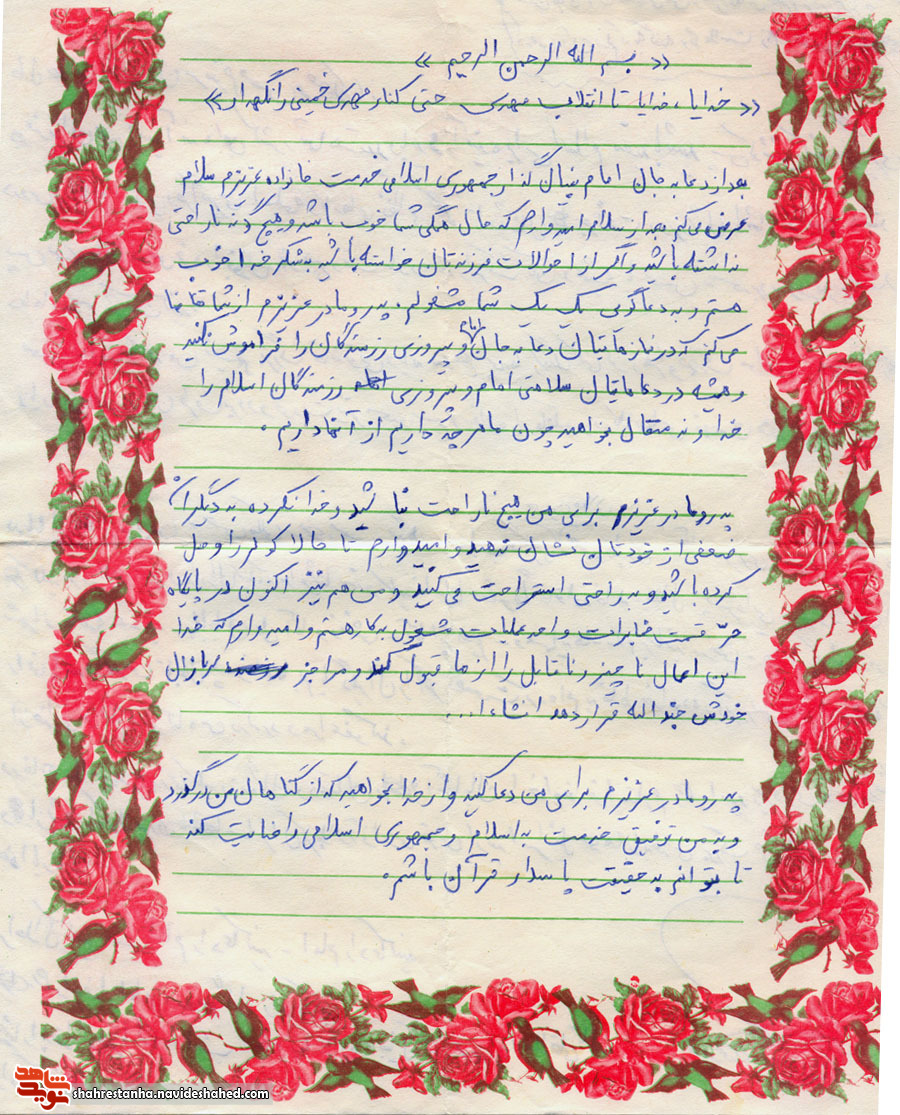 « بسم الله الرحمن الرحیم »
« خدایا، خدایا تا انقلاب مهدی حتی کنار مهدی خمینی را نگهدار »
بعد از دعا به جان امام بنیان گذار جمهوری اسلامی خدمت خانواده عزیزم سلام
عرض می کنم بعد از سلام امیدوارم که حال همگی شما خوب باشد و هیچ گونه ناراحتی
نداشته باشید و اگر از احوالات فرزندتان خواسته باشید بشکر خدا خوب
هستم و به دعاگویی یک یک شما مشغولم. پدر و مادر عزیزم از شما تقاضا
می کنم که در نمازهایتان دعا به جان امام و پیروزی رزمندگان را فراموش نکنید
و همیشه در دعاهایتان سلامتی امام و پیروزی رزمندگان اسلام را
خداوند متعال بخواهید چون ما هر چه داریم از آنها داریم.
پدر و مادر عزیزم برای من هیچ ناراحت نباشید و خدا نکرده به دیگران
ضعفی از خودتان نشان ندهید و امیدوارم تا حالا کولر را وصل
کرده باشید و به راحتی استراحت می کنید و من هم نیز اکنون در پایگاه
حرّ قسمت مخابرات واحد عملیات مشغول به کار هستم و امیدوارم که خدا
این اعمال ناچیز و ناقابل را از ما قبول کند و مرا جز سربازان
خودش جند الله قرار دهد انشاءا...
پدر و مادر عزیزم برای من دعا کنید و از خدا بخواهید که از گناهان من درگذرد
و به من توفیق خدمت به اسلام و جمهوری اسلامی را عنایت کند
تا بتوانم به حقیقت پاسدار قرآن باشم.
نوید شاهد
shahrestanha.navideshahed.com